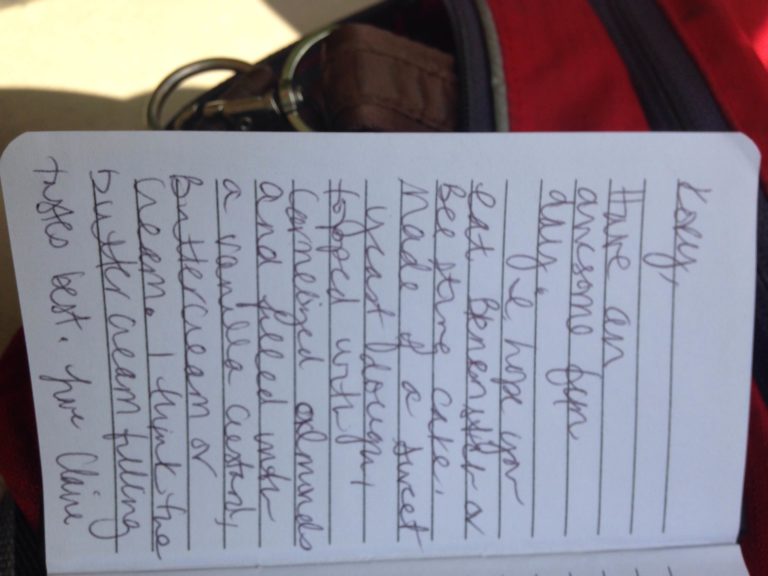 Kory,
Have an
awesome fun
day. I hope you
eat Bienenstich or
Bee sting cake.
Made of a sweet
yeast dough,
topped with
carmelized almonds
and filled with
a vanilla custard,
Buttercream or
cream. I think the
buttercream filling
tastes best. love Claire